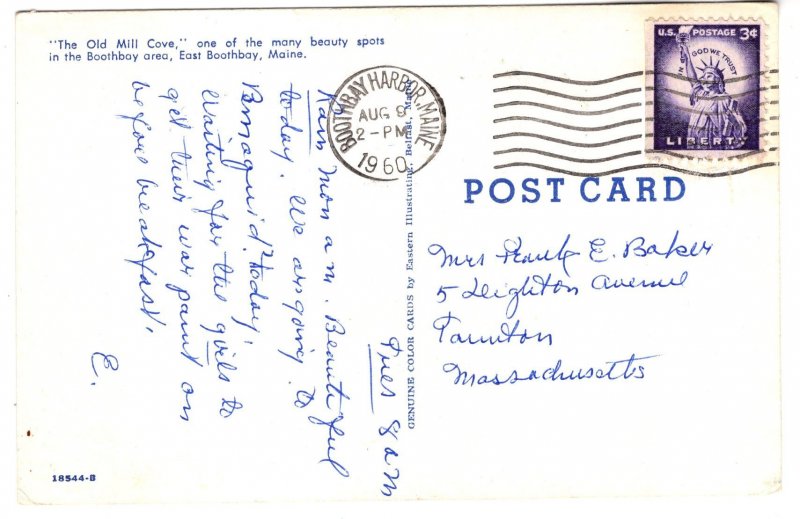 "The Old Mill Cove," one of the many beauty spots
in the Boothbay area, East Boothbay, Maine.
Tues 8 am
Rain Mon a.m. Beautiful
today. We are going to
Pemaquid today.
Waiting for the girls to
get their war paint on
before breakfast.
E.
18544-B
GENUINE COLOR CARDS by Eastern Illustrating, Belfast, Maine
BOOTHBAY HARBOR, MAINE
AUG 9
2-PM
1960
U.S. POSTAGE 3¢
IN GOD WE TRUST
LIBERTY
POST CARD
Mrs Frank E. Baker
5 Leighton Avenue
Taunton
Massachusetts